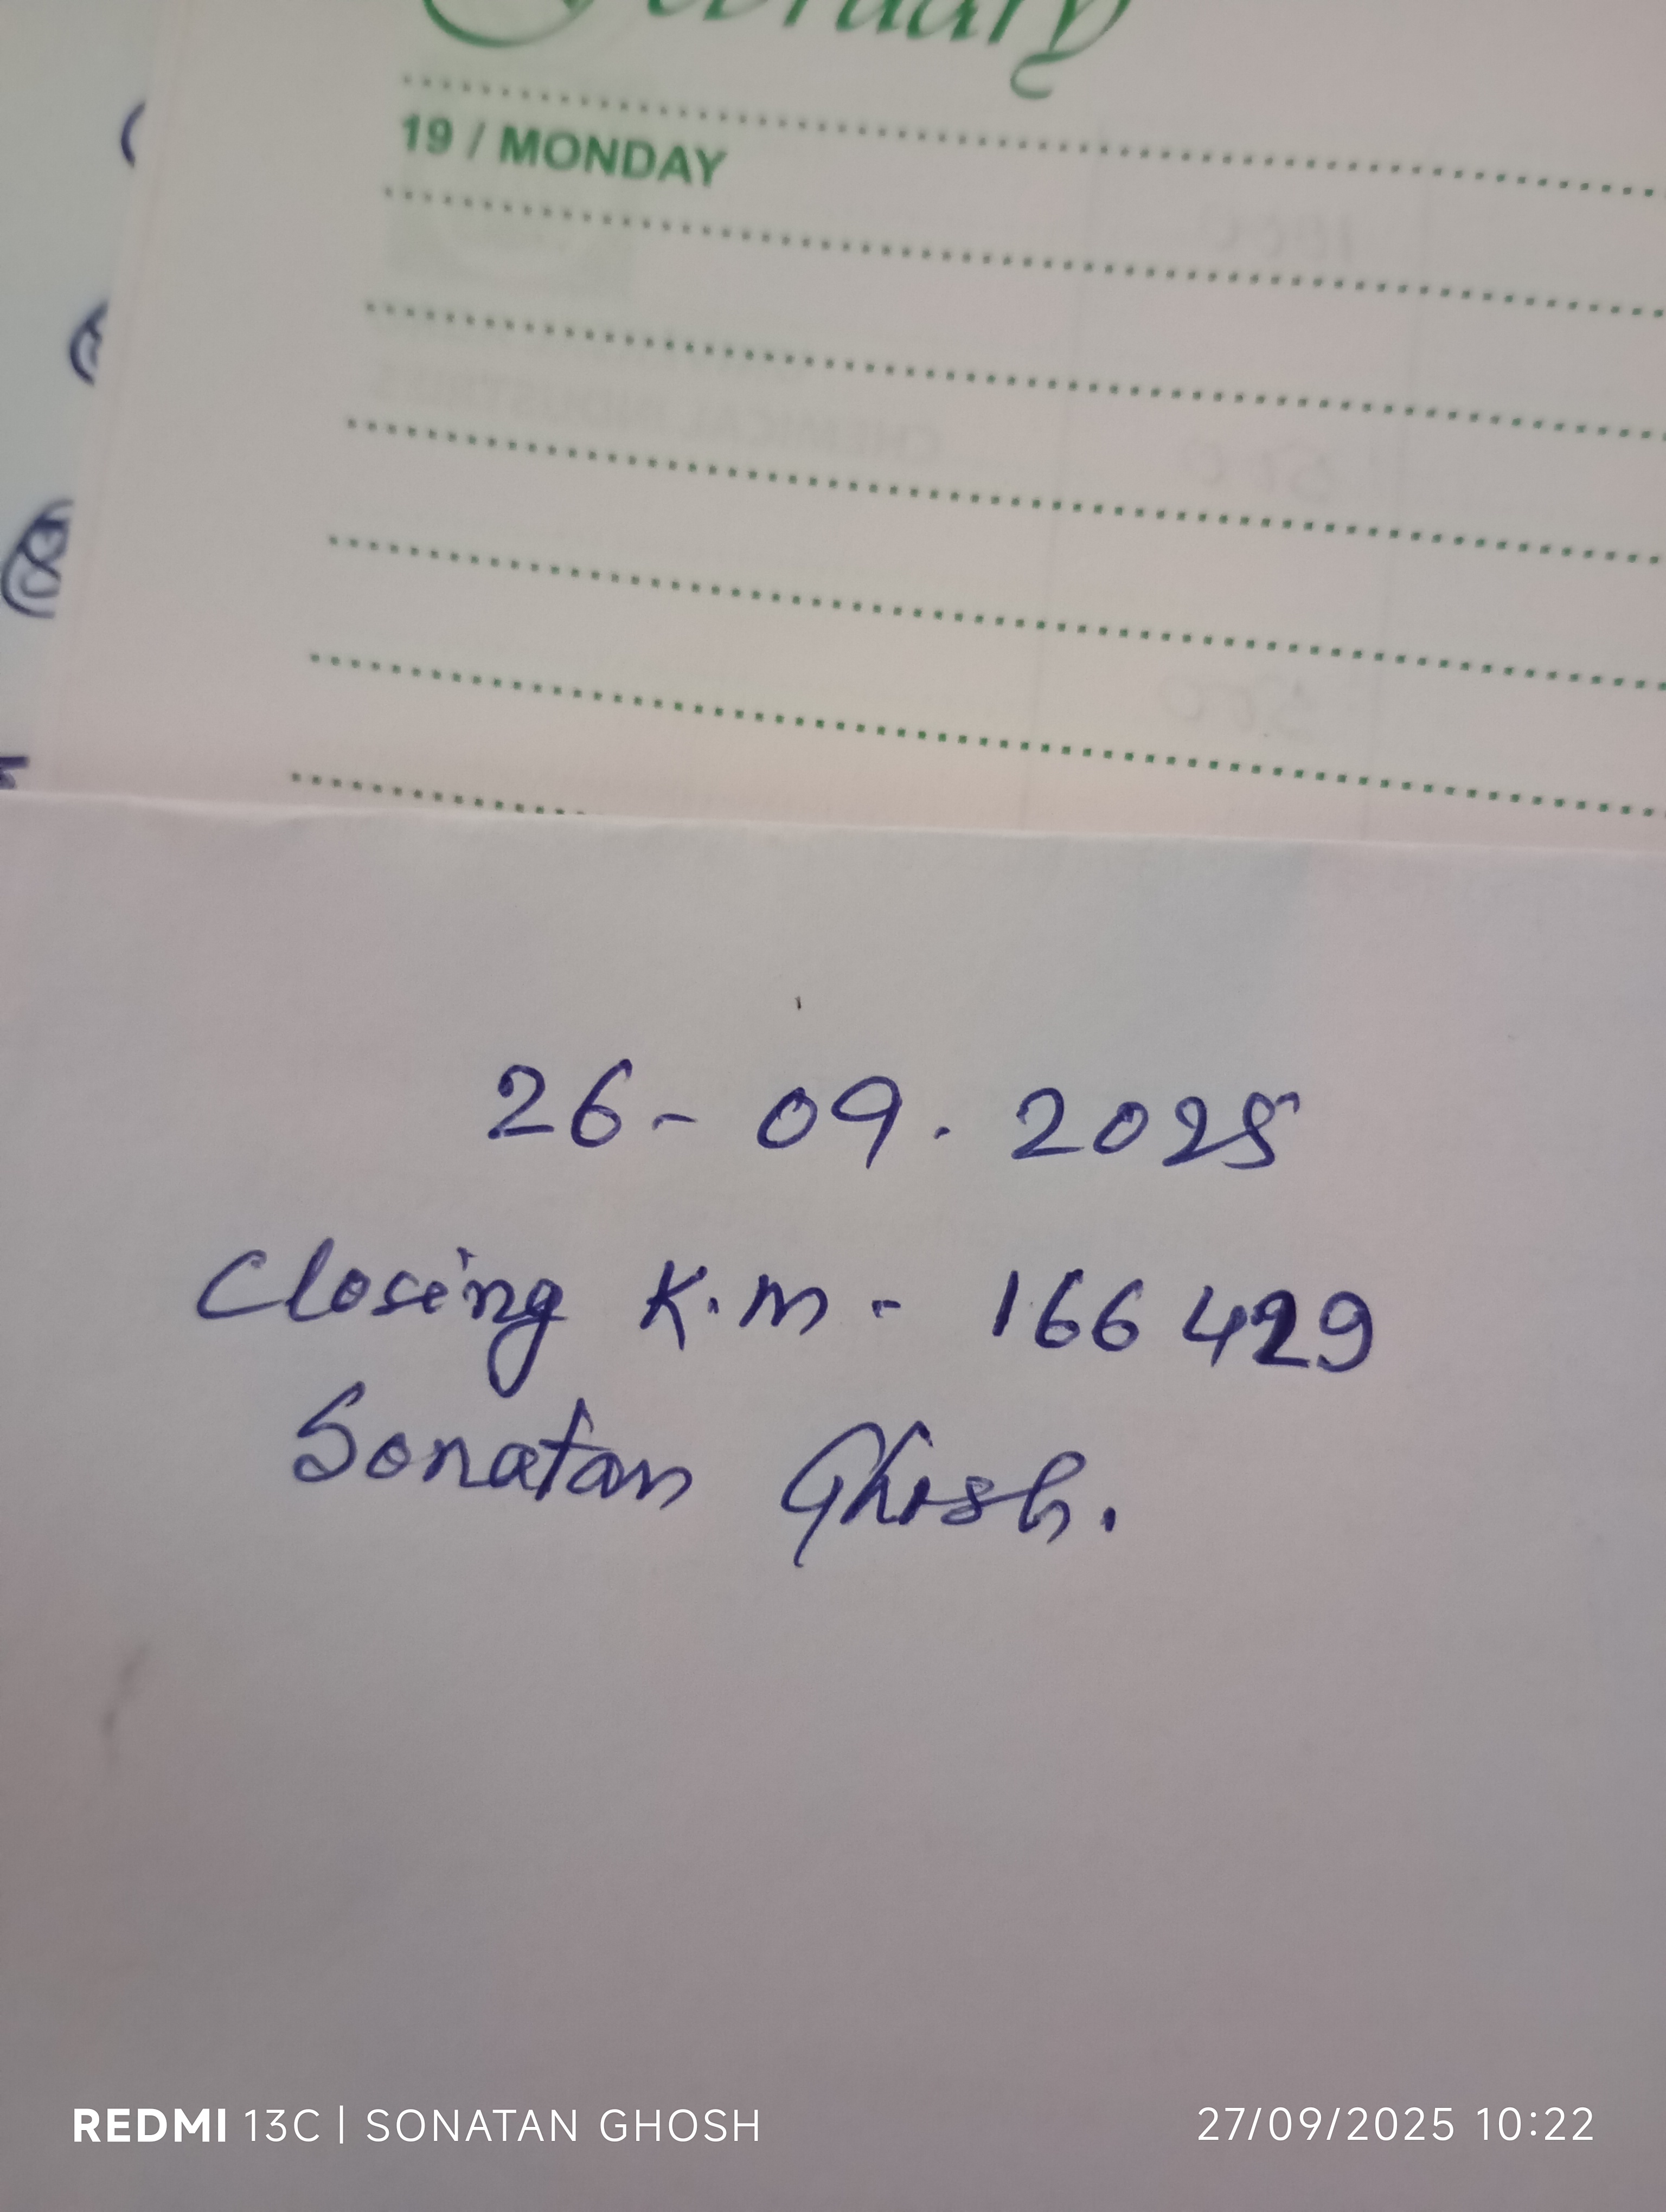 February
19 / MONDAY
26 - 09 . 2025
Closing K.M - 166429
Sonatan Ghosh.
REDMI 13C | SONATAN GHOSH
27/09/2025 10:22